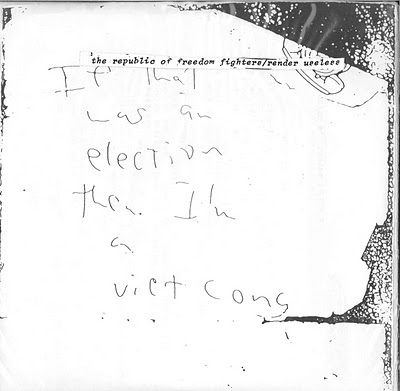 the republic of freedom fighters/render useless
If that
was an
election
then I'm
a
viet cong